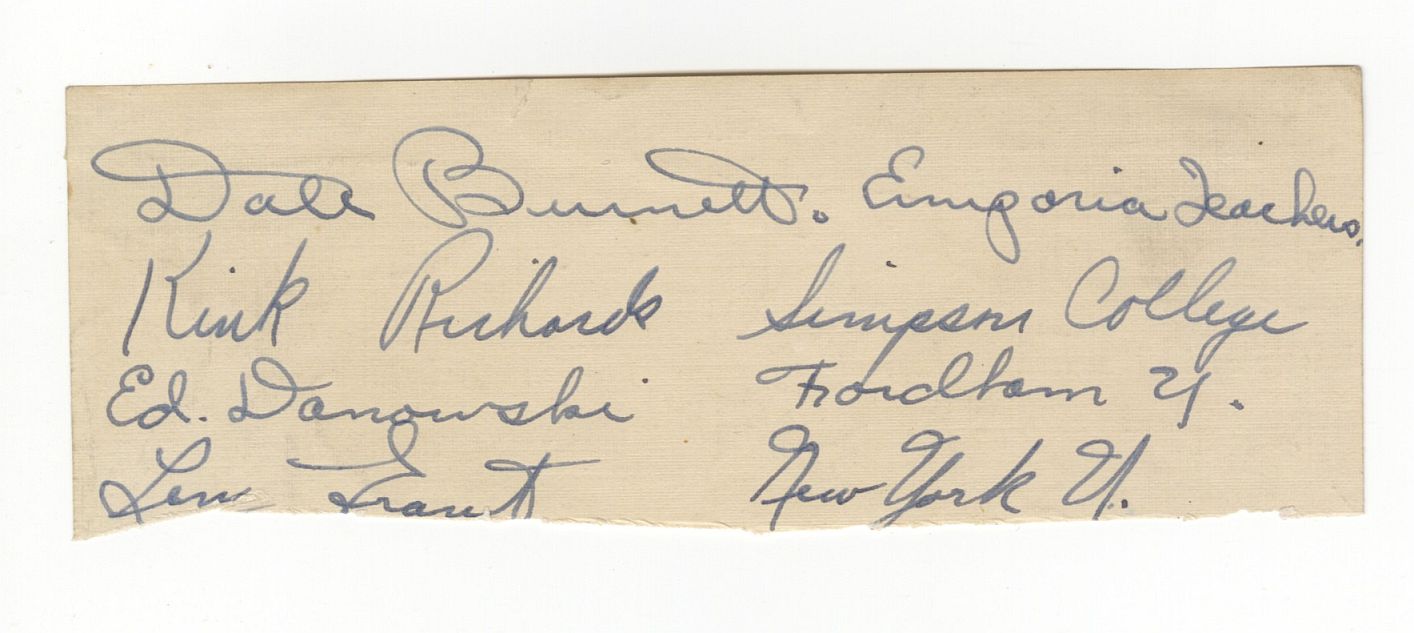 Dale Burnett. Emporia Teachers.
Kink Richards Simpson College
Ed. Danowski Fordham U.
Len Grant New York U.